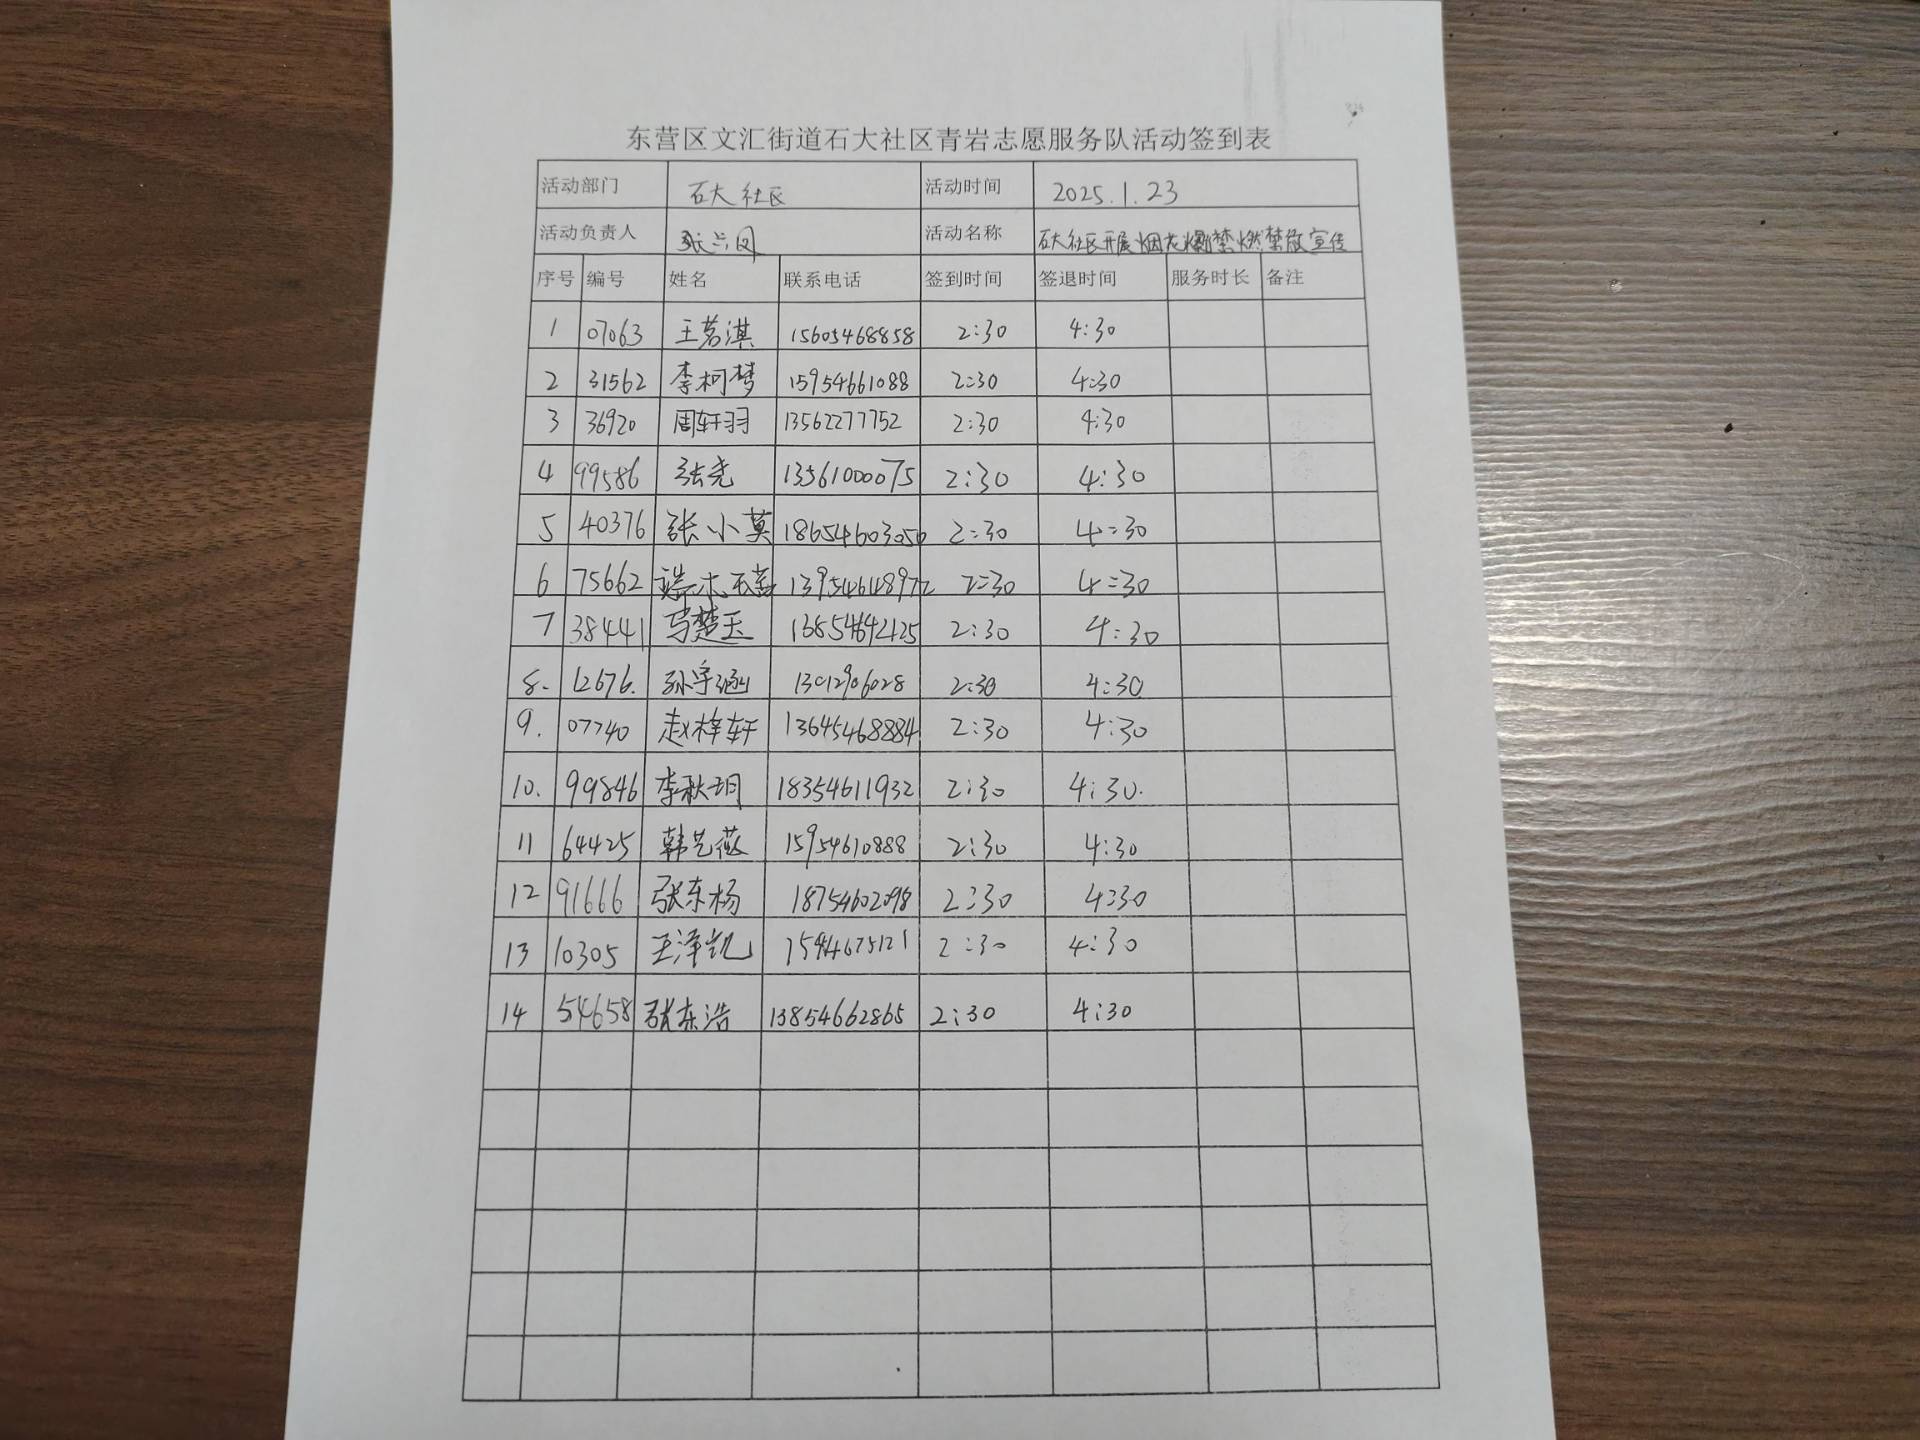 东营区文汇街道石大社区青岩志愿服务队活动签到表
活动部门 石大社区 活动时间 2025.1.23
活动负责人 活动名称 石大社区开展烟花爆禁燃禁放宣传
序号 编号 姓名 联系电话 签到时间 签退时间 服务时长 备注
1 07063 王茗淇 15605468858 2:30 4:30
2 31562 李柯梦 15954661088 2:30 4:30
3 36920 周轩羽 13562277752 2:30 4:30
4 99586 张尧 13561000075 2:30 4:30
5 40376 张小莫 18654603056 2:30 4:30
6 75662 2:30 4:30
7 38441 马楚玉 13854642125 2:30 4:30
8. 12676. 孙宇涵 2:30 4:30
9. 07740 赵梓轩 13645468884 2:30 4:30
10. 99846 李秋玥 18354611932 2:30 4:30.
11 64425 韩艺薇 15954610888 2:30 4:30
12 91666 张东杨 18754602098 2:30 4:30
13 10305 王泽凯 2:30 4:30
14 54658 张东浩 13854662865 2:30 4:30